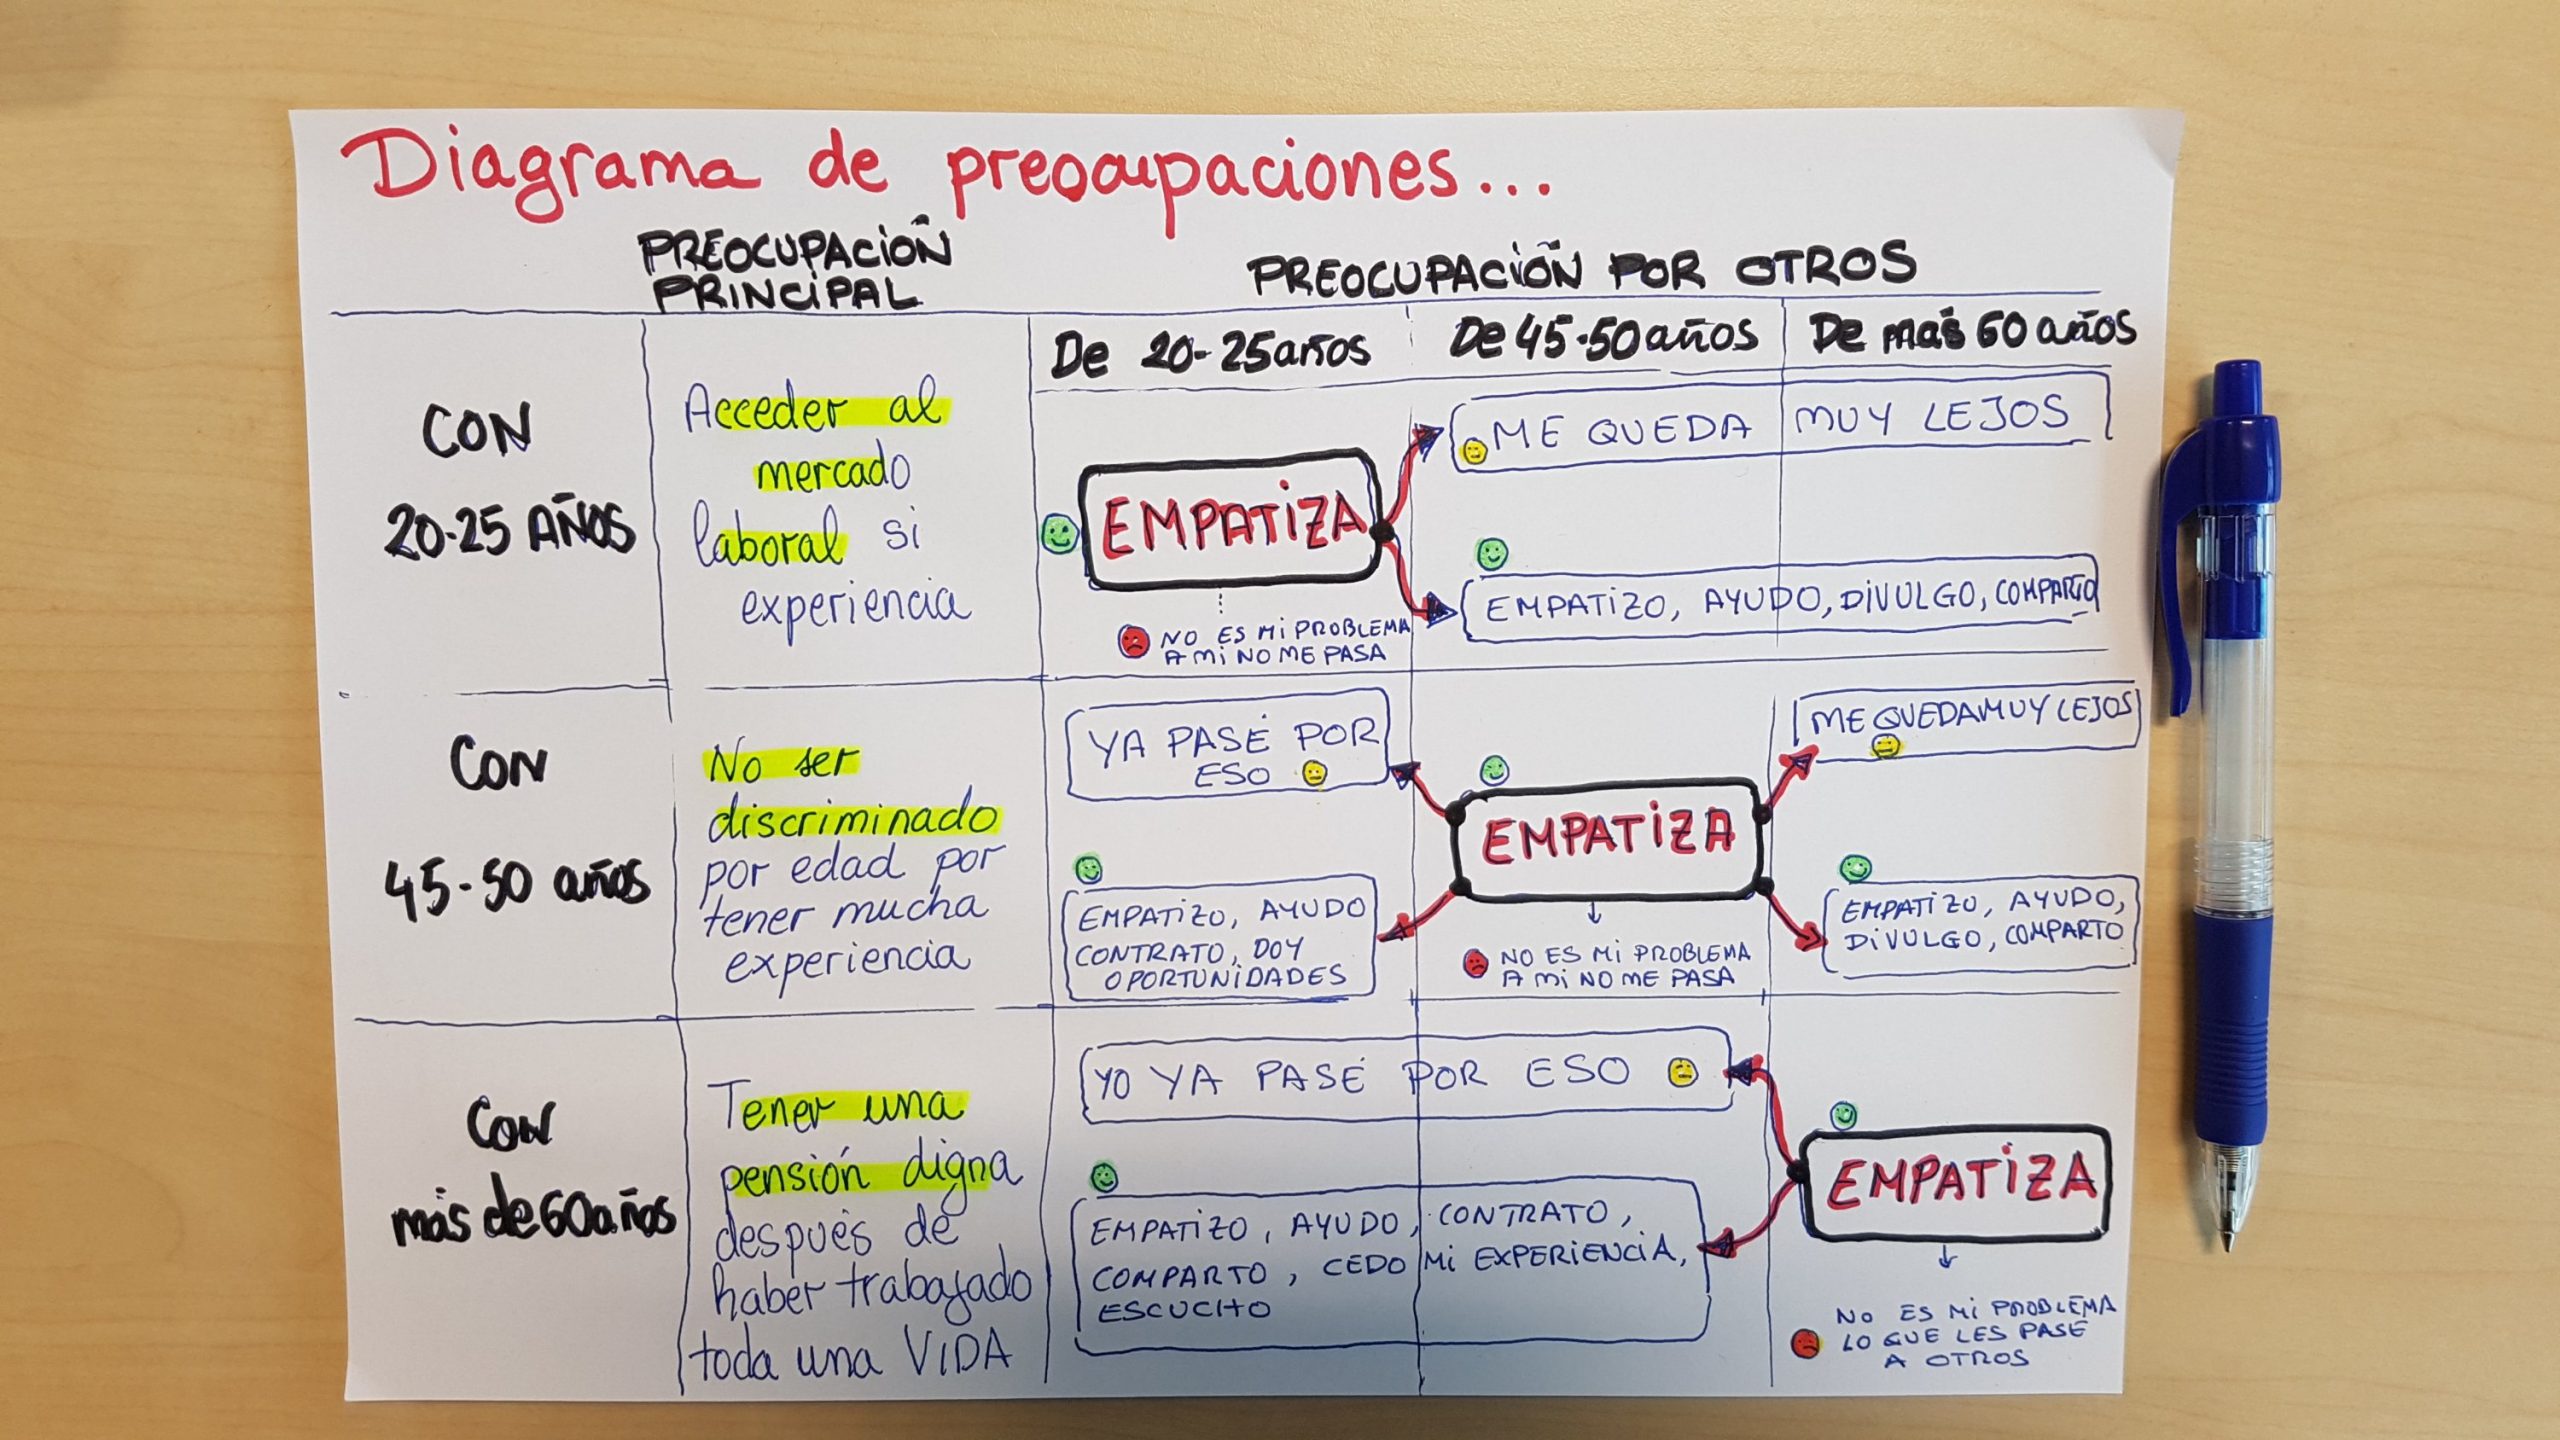 Diagrama de preocupaciones...
PREOCUPACIÓN
PRINCIPAL
PREOCUPACIÓN POR OTROS
De 20-25 años
De 45-50 años
De más 60 años
CON
20-25 AÑOS
Acceder al
mercado
laboral si
experiencia
EMPATIZA
NO ES MI PROBLEMA
A MI NO ME PASA
ME QUEDA MUY LEJOS
EMPATIZO, AYUDO, DIVULGO, COMPARTO
CON
45-50 años
No ser
discriminado
por edad por
tener mucha
experiencia
YA PASÉ POR
ESO
EMPATIZO, AYUDO
CONTRATO, DOY
OPORTUNIDADES
EMPATIZA
NO ES MI PROBLEMA
A MI NO ME PASA
ME QUEDA MUY LEJOS
EMPATIZO, AYUDO,
DIVULGO, COMPARTO
CON
más de 60 años
Tener una
pensión digna
después de
haber trabajado
toda una VIDA
YO YA PASÉ POR ESO
EMPATIZO, AYUDO, CONTRATO,
COMPARTO, CEDO MI EXPERIENCIA,
ESCUCHO
EMPATIZA
NO ES MI PROBLEMA
LO QUE LES PASE
A OTROS